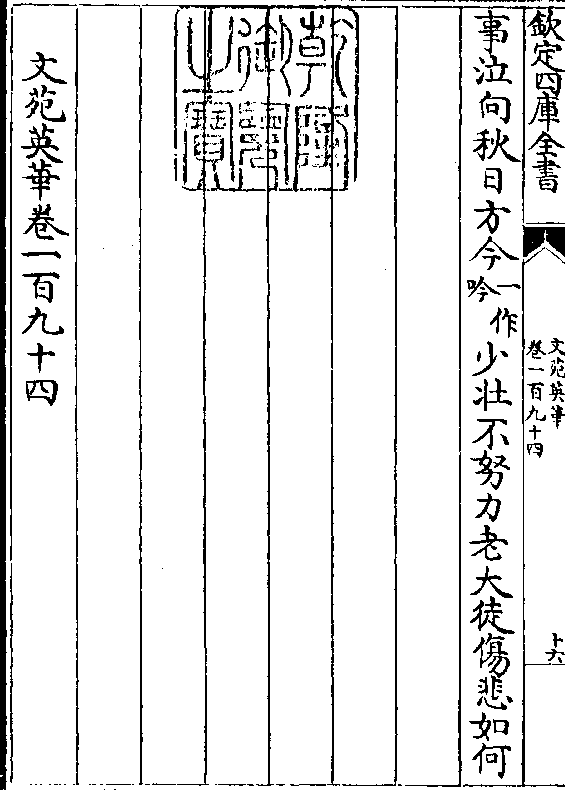 欽定四庫全書
文苑英華
卷一百九十四
十六
事泣向秋日方今一作吟少壯不努力老大徒傷悲如何
乾隆御覽之寶
文苑英華卷一百九十四